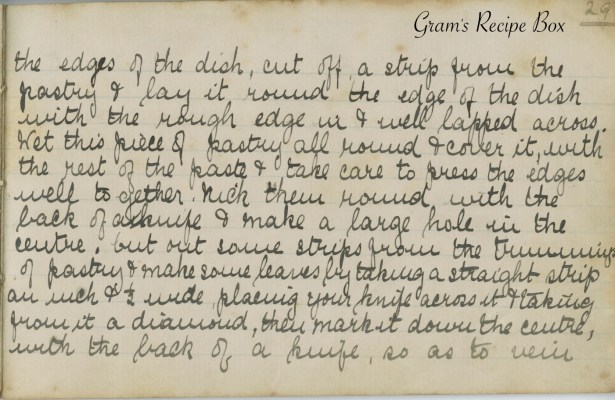 29
Gram's Recipe Box
the edges of the dish, cut off a strip from the
pastry & lay it round the edge of the dish
with the rough edge in & well lapped across.
Wet this piece of pastry all round & cover it, with
the rest of the paste & take care to press the edges
well together. Nick them round, with the
back of a knife & make a large hole in the
centre. but out some strips from the trimmings
of pastry & make some leaves by taking a straight strip
an inch & ½ wide, placing your knife across it & taking
from it a diamond, then mark it down the centre,
with the back of a knife, so as to vein